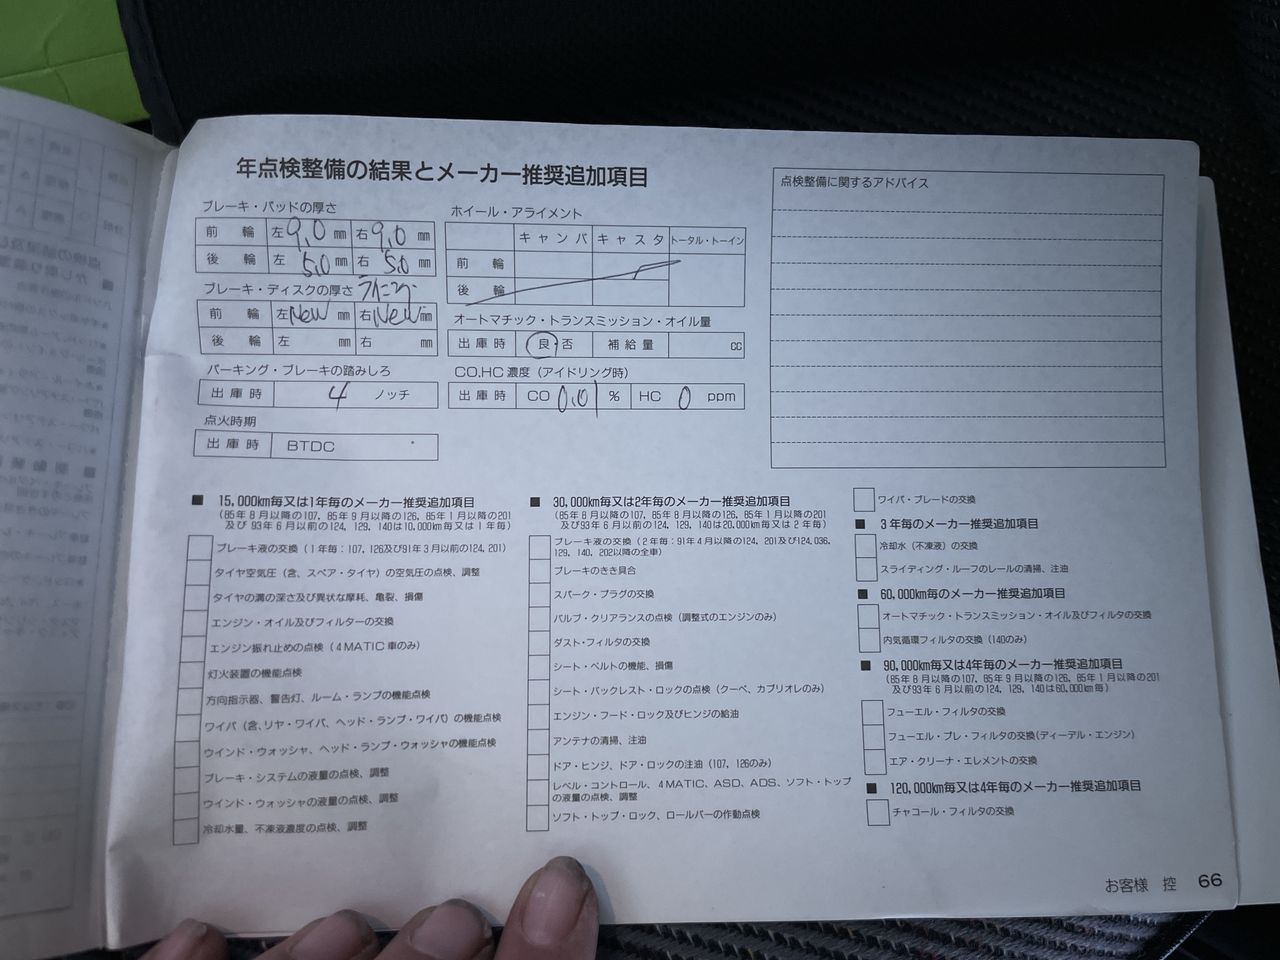 年点検整備の結果とメーカー推奨追加項目
ブレーキ・パッドの厚さ
前 輪 左 9.0 mm 右 9.0 mm
後 輪 左 5.0 mm 右 5.0 mm
ブレーキ・ディスクの厚さ
前 輪 左 New mm 右 New mm
後 輪 左 mm 右 mm
パーキング・ブレーキの踏みしろ
出庫時 4 ノッチ
点火時期
出庫時 BTDC °
ホイール・アライメント
キャンバ キャスタ トータル・トーイン
前 輪
後 輪
オートマチック・トランスミッション・オイル量
出庫時 良・否 補給量 cc
CO,HC 濃度（アイドリング時）
出庫時 CO 0.01 % HC 0 ppm
点検整備に関するアドバイス
■ 15,000km毎又は1年毎のメーカー推奨追加項目
（85年8月以降の107、85年9月以降の126、85年1月以降の201
及び93年6月以前の124、129、140は10,000km毎又は1年毎）
ブレーキ液の交換（1年毎：107、126及び91年3月以前の124、201）
タイヤ空気圧（含、スペア・タイヤ）の空気圧の点検、調整
タイヤの溝の深さ及び異状な摩耗、亀裂、損傷
エンジン・オイル及びフィルターの交換
エンジン振れ止めの点検（4MATIC車のみ）
灯火装置の機能点検
方向指示器、警告灯、ルーム・ランプの機能点検
ワイパ（含、リヤ・ワイパ、ヘッド・ランプ・ワイパ）の機能点検
ウインド・ウォッシャ、ヘッド・ランプ・ウォッシャの機能点検
ブレーキ・システムの液量の点検、調整
ウインド・ウォッシャの液量の点検、調整
冷却水量、不凍液濃度の点検、調整
■ 30,000km毎又は2年毎のメーカー推奨追加項目
（85年8月以降の107、85年8月以降の126、85年1月以降の201
及び93年6月以前の124、129、140は20,000km毎又は2年毎）
ブレーキ液の交換（2年毎：91年4月以降の124、201及び124.036、
129、140、202以降の全車）
ブレーキのきき具合
スパーク・プラグの交換
バルブ・クリアランスの点検（調整式のエンジンのみ）
ダスト・フィルタの交換
シート・ベルトの機能、損傷
シート・バックレスト・ロックの点検（クーペ、カブリオレのみ）
エンジン・フード・ロック及びヒンジの給油
アンテナの清掃、注油
ドア・ヒンジ、ドア・ロックの注油（107、126のみ）
レベル・コントロール、4MATIC、ASD、ADS、ソフト・トップ
の液量の点検、調整
ソフト・トップ・ロック、ロールバーの作動点検
ワイパ・ブレードの交換
■ 3年毎のメーカー推奨追加項目
冷却水（不凍液）の交換
スライディング・ルーフのレールの清掃、注油
■ 60,000km毎のメーカー推奨追加項目
オートマチック・トランスミッション・オイル及びフィルタの交換
内気循環フィルタの交換（140のみ）
■ 90,000km毎又は4年毎のメーカー推奨追加項目
（85年8月以降の107、85年9月以降の126、85年1月以降の201
及び93年6月以前の124、129、140は60,000km毎）
フューエル・フィルタの交換
フューエル・プレ・フィルタの交換（ディーデル・エンジン）
エア・クリーナ・エレメントの交換
■ 120,000km毎又は4年毎のメーカー推奨追加項目
チャコール・フィルタの交換
お客様 控 66